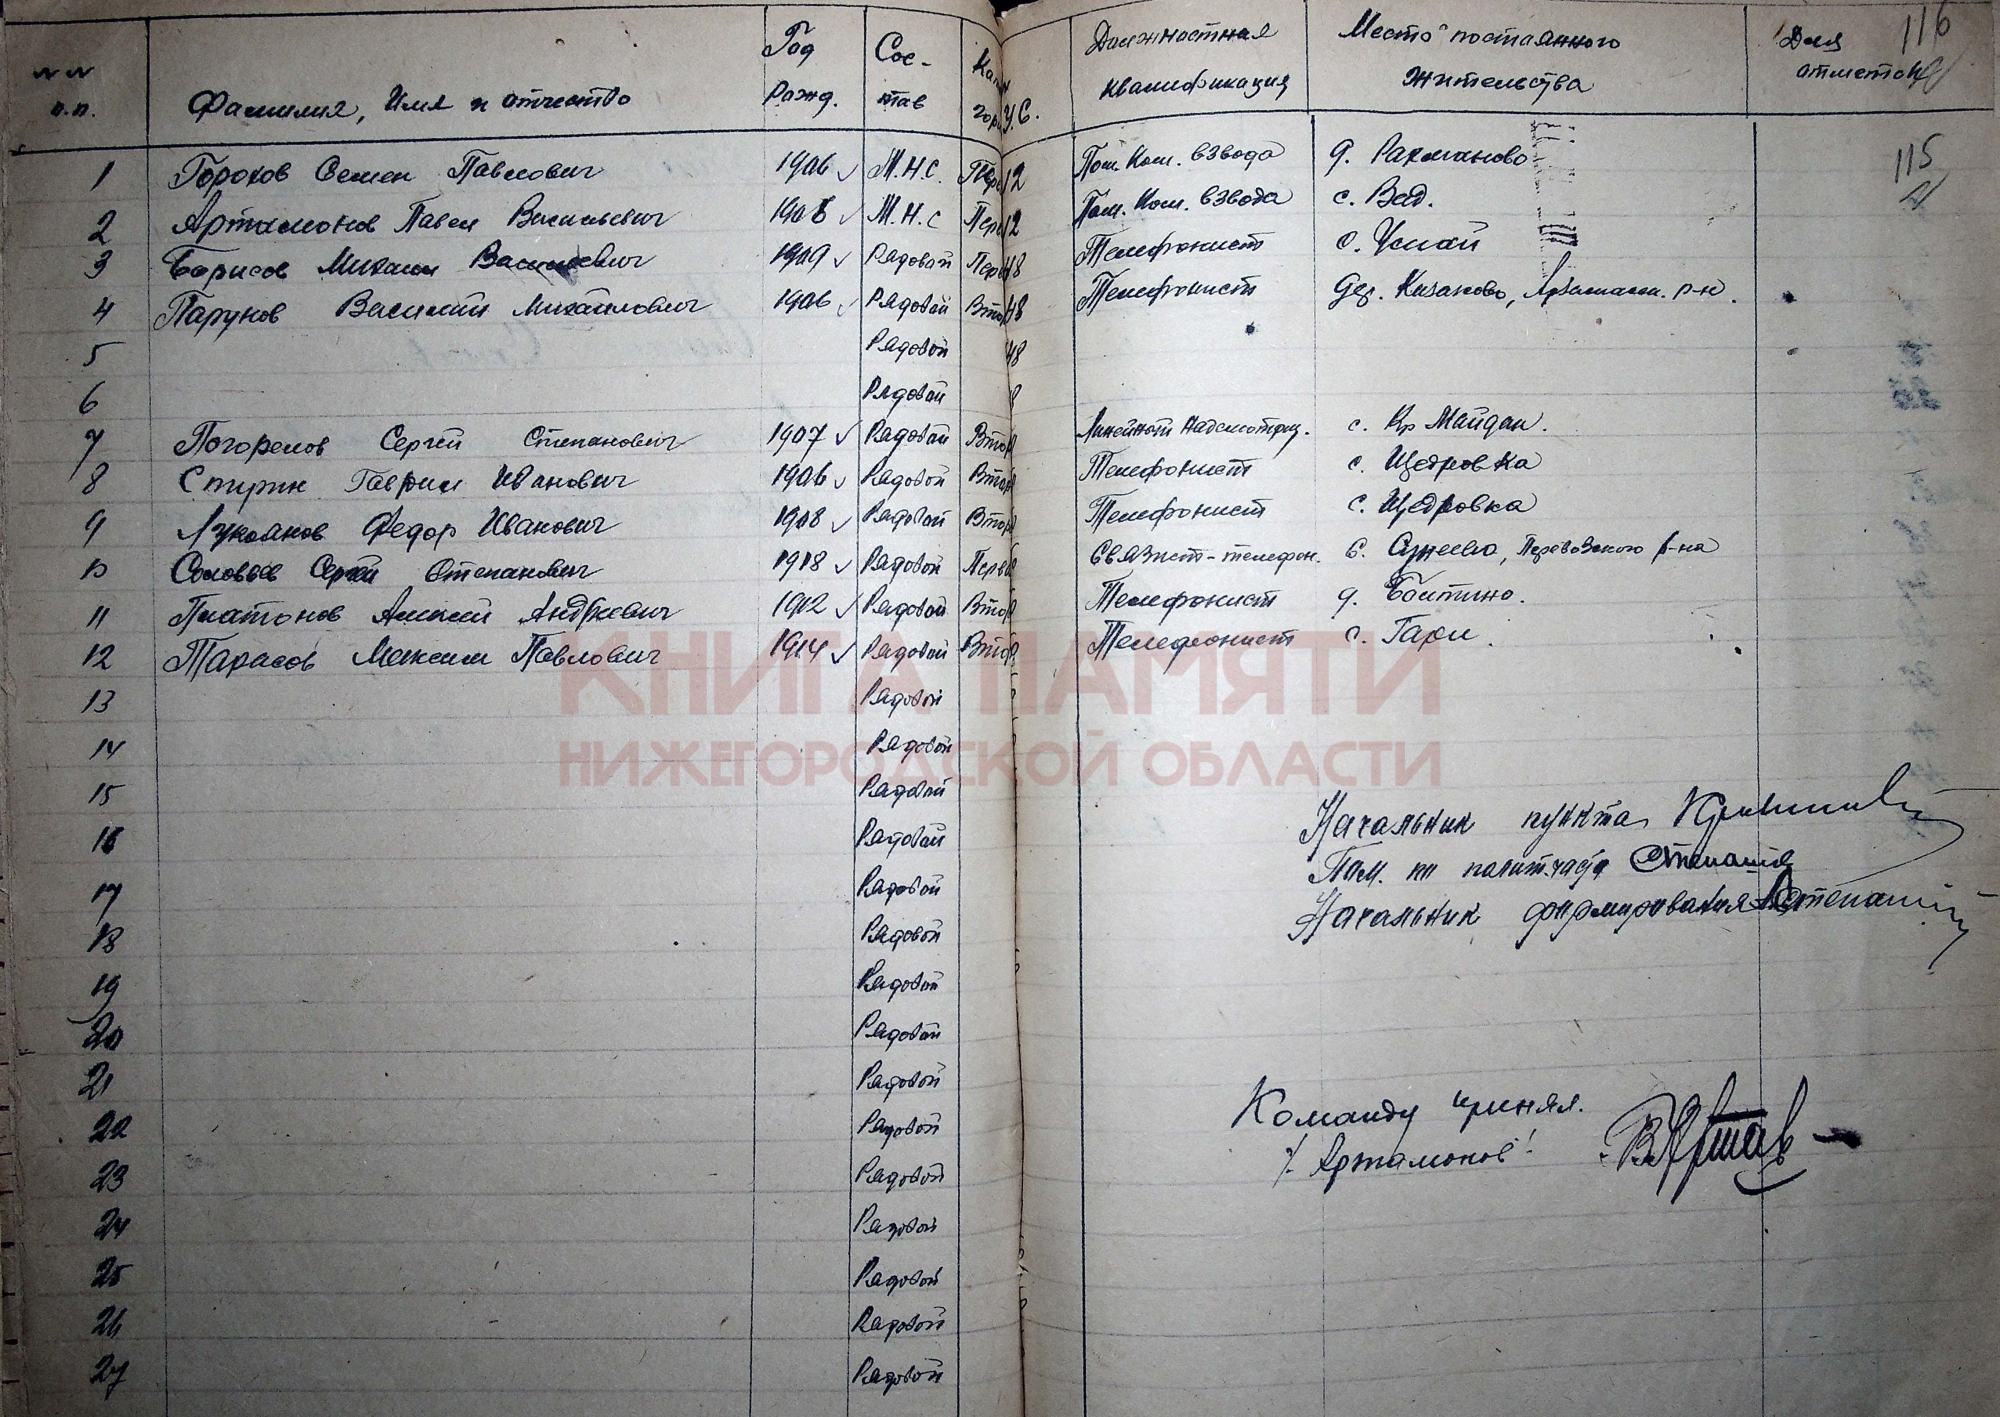 № № п.п. Фамилия, Имя и отчество Год Рожд. Сос-тав У.С. Должностная квалификация Место постоянного жительства Для отметок
116
115
1 Горохов Семен Павлович 1906 М.Н.С. Перв 12 Пом. Ком. взвода д. Рахманово
2 Артамонов Павел Васильевич 1908 М.Н.С Перв 12 Пом. Ком. взвода с. Вад.
3 Борисов Михаил Васильевич 1909 Рядовой Перв 48 Телефонист с. Чопай
4 Парунов Василий Михайлович 1906 Рядовой Втор 48 Телефонист дер. Казаково, Арзамасск. р-н.
5 Рядовой 48
6 Рядовой 8
7 Погорелов Сергей Степанович 1907 Рядовой Втор Линейный надсмотрщ. с. Кр Майдан.
8 Спирин Гаврил Иванович 1906 Рядовой Втор Телефонист с. Щедровка
9 Лукоянов Федор Иванович 1908 Рядовой Втор Телефонист с. Щедровка
10 Соловьев Сергей Степанович 1918 Рядовой Перв Связист-телефон. с. Сунеево, Перевозского р-на
11 Платонов Алексей Андреевич 1912 Рядовой Втор Телефонист д. Болтино.
12 Тарасов Максим Павлович 1914 Рядовой Втор Телефонист с. Гари.
13 Рядовой
14 Рядовой
15 Рядовой
16 Рядовой
17 Рядовой
18 Рядовой
19 Рядовой
20 Рядовой
21 Рядовой
22 Рядовой
23 Рядовой
24 Рядовой
25 Рядовой
26 Рядовой
27 Рядовой
КНИГА ПАМЯТИ
НИЖЕГОРОДСКОЙ ОБЛАСТИ
Начальник пункта
Пом. по политчасти
Начальник формирования
Команду принял.
/. Артамонов /